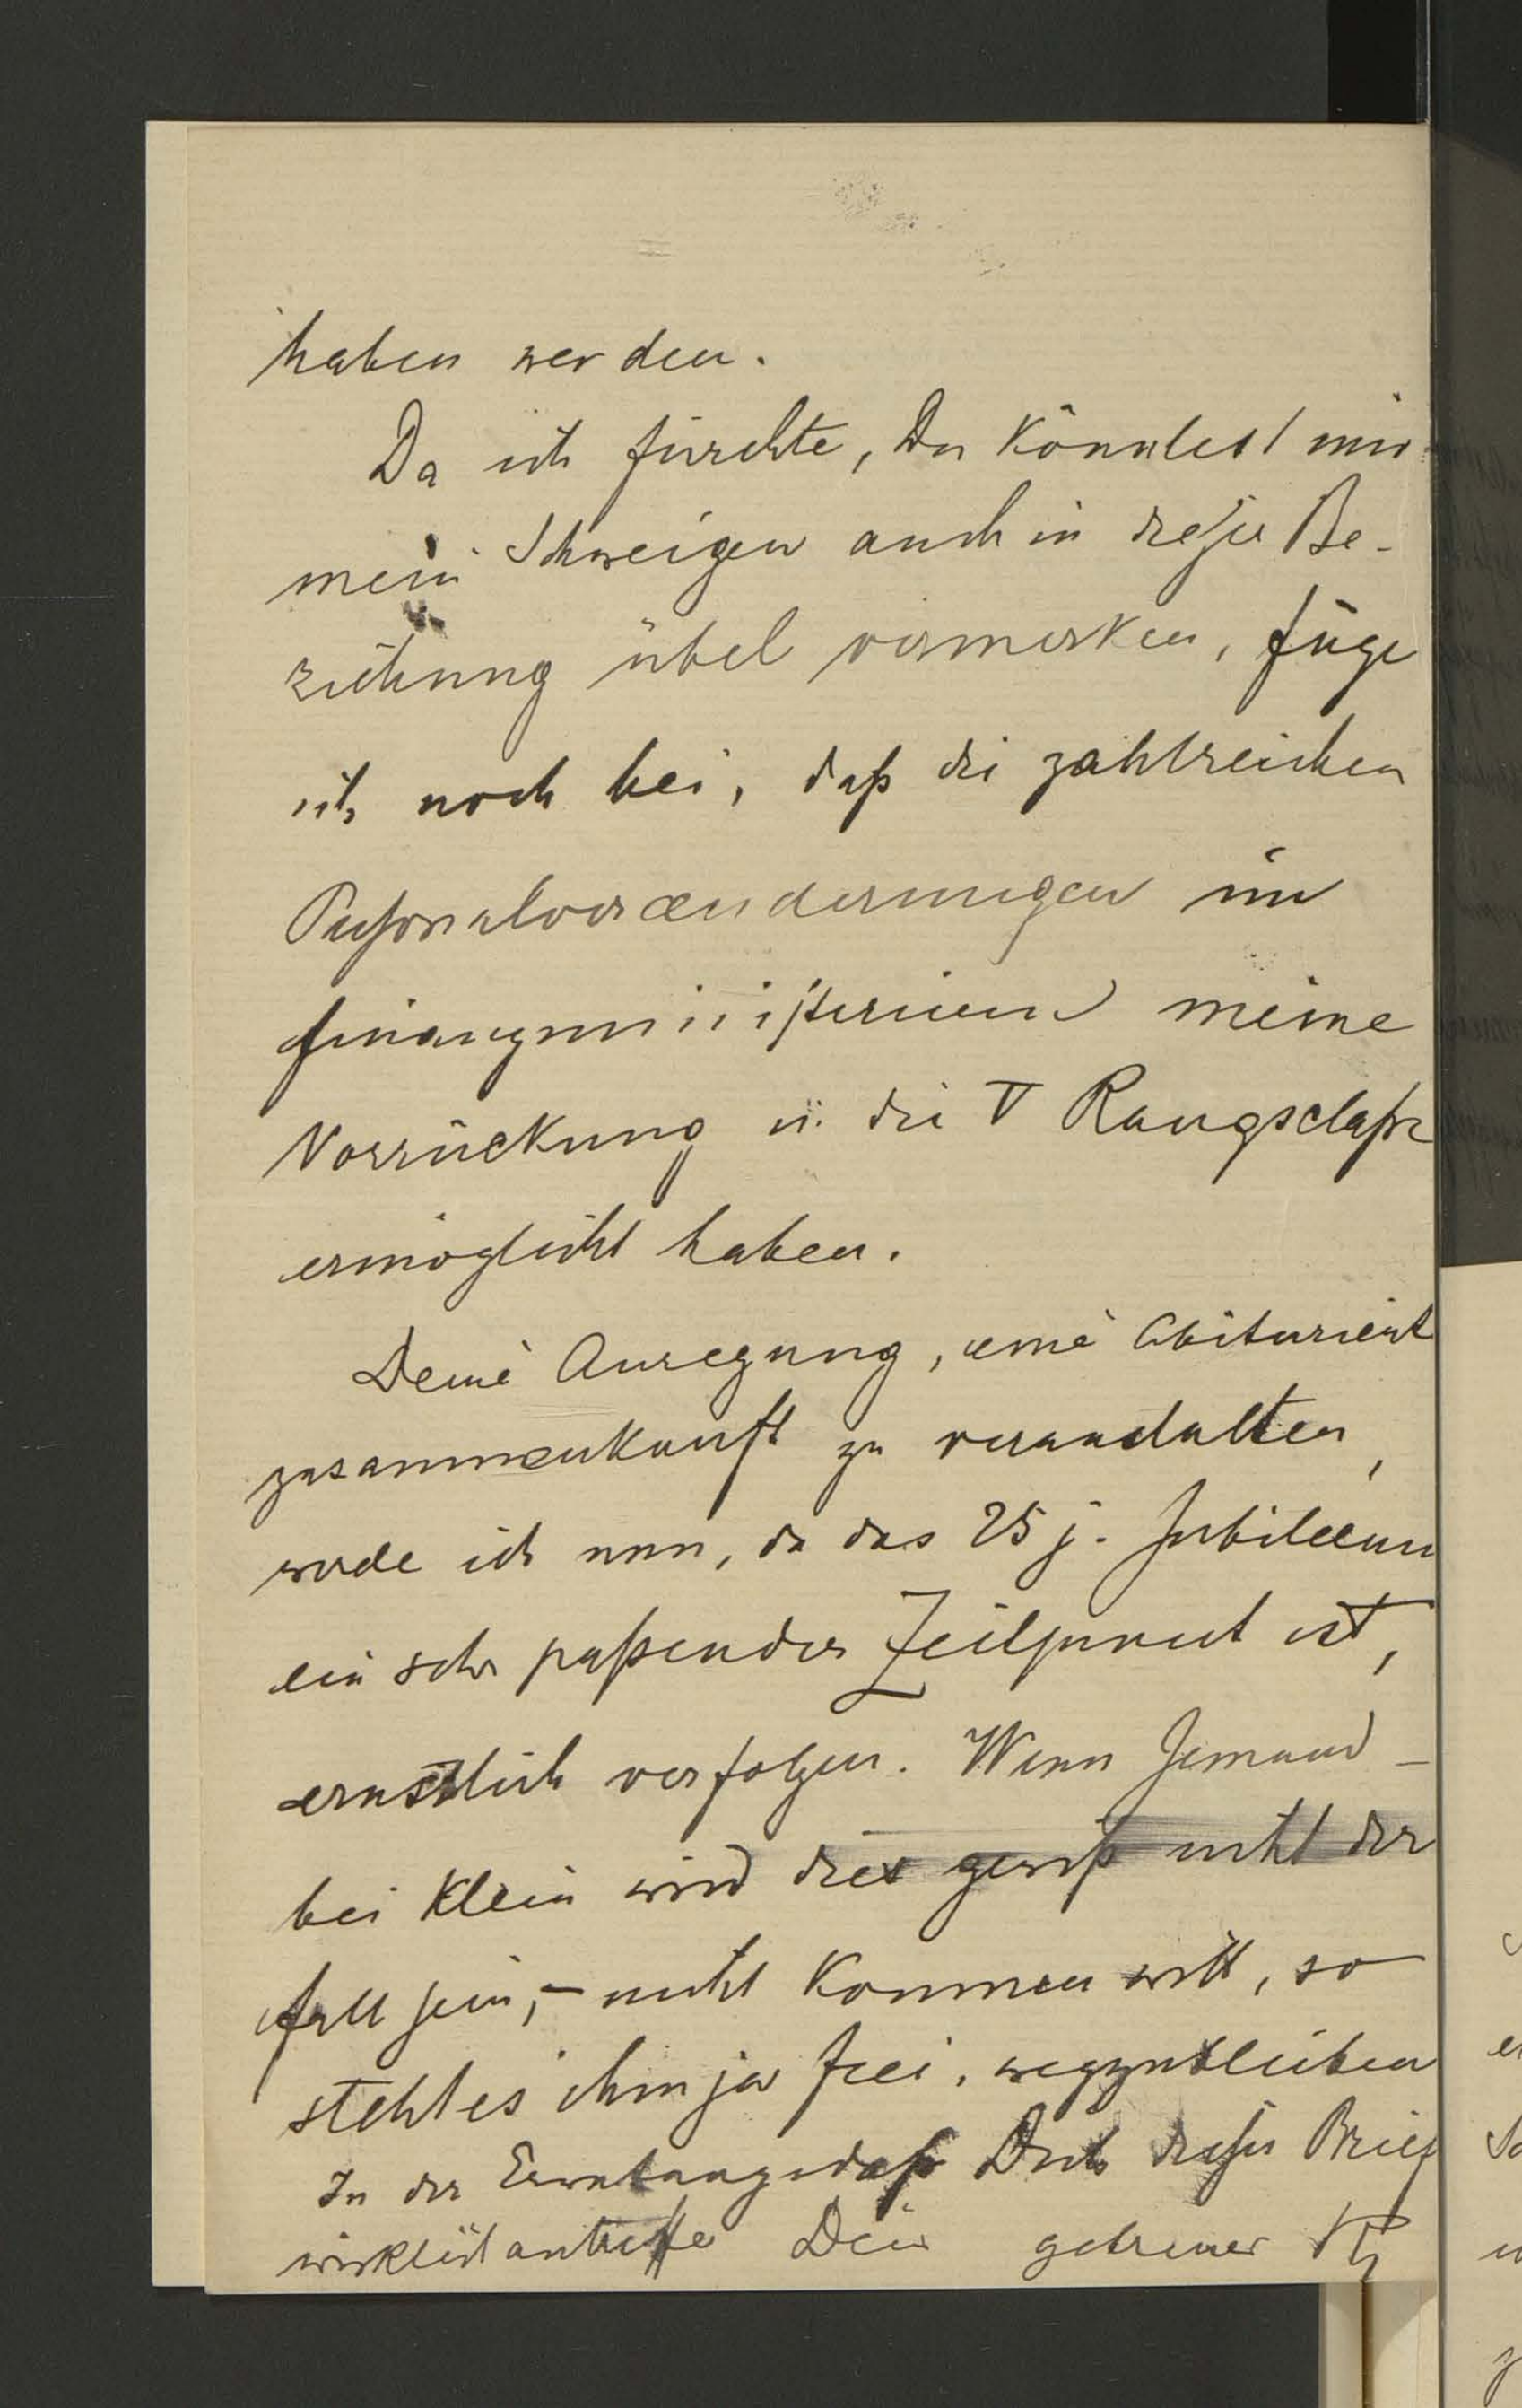 haben werden.
Da ich fürchte, Du könntest mir
mein Schweigen auch in dieser Be-
ziehung übel vermerken, füge
ich noch bei, daß die zahlreichen
Personalveraenderungen im
Finanzministerium meine
Vorrückung in die V Rangsclasse
ermöglicht haben.
Deine Anregung, eine Abiturient
zusammenkunft zu veranstalten,
werde ich nun, da das 25 j. Jubileum
ein sehr paßender Zeitpunct ist,
ernstlich verfolgen. Wenn Jemand –
bei Klein wird dies gewiß nicht der
Fall sein, – nicht kommen will, so
steht es ihm ja frei, wegzubleiben
In der Erwartung daß Dich dieser Brief
wirklich antreffe Dein getreuer